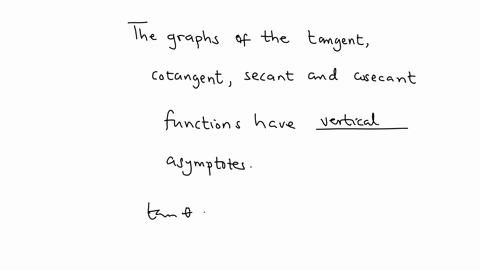 The graphs of the tangent,
cotangent, secant and cosecant
functions have vertical
asymptotes.
tan θ.